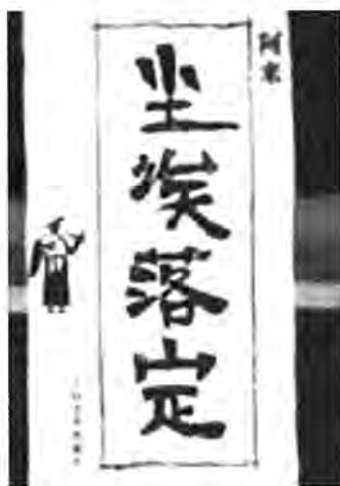 阿来
尘埃落定